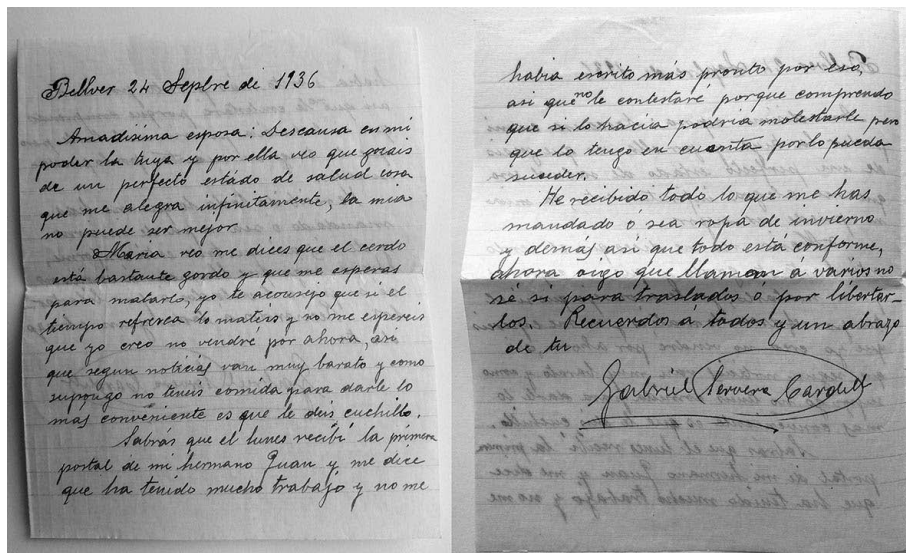 Bellver 24 Sepbre de 1936
Amadisima esposa: Descansa en mi
poder la tuya y por ella veo que gozais
de un perfecto estado de salud cosa
que me alegra infinitamente, la mia
no puede ser mejor.
Maria veo me dices que el cerdo
está bastante gordo y que me esperas
para matarlo, yo te aconsejo que si el
tiempo refresca lo mateis y no me espereis
que yo creo no vendré por ahora, asi
que segun noticias van muy barato y como
supongo no teneis comida para darle lo
mas conveniente es que le deis cuchillo.
Sabrás que el lunes recibí la primera
postal de mi hermano Juan y me dice
que ha tenido mucho trabajo y no me
habia escrito más pronto por eso,
asi que no le contestaré porque comprendo
que si lo hacia podria molestarle pero
que lo tengo en cuenta por lo pueda
suceder.
He recibido todo lo que me has
mandado ó sea ropa de invierno
y demás asi que todo está conforme,
ahora oigo que llaman á varios no
sé si para traslados ó por libertar-
los. Recuerdos á todos y un abrazo
de tu
Gabriel Servera Cardell